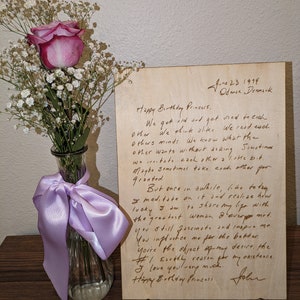 June 23 1994
Odense Denmark
Happy Birthday Princess,
We get old and get used to each
other. We think alike. We read each
others minds. We know what the
other wants without asking. Sometimes
we irritate each other a little bit.
Maybe sometimes take each other for
granted.
But once in awhile, like today,
I meditate on it and realize how
lucky I am to share my life with
the greatest woman I ever met.
You still fascinate and inspire me
You influence me for the better.
You're the object of my desire, the
#1 Earthly reason for my existence.
I love you very much.
Happy Birthday Princess.
John